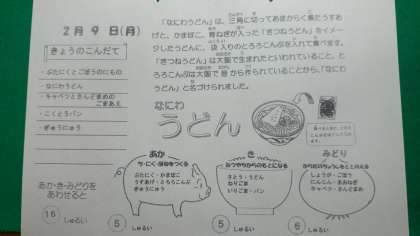 2月9日(月)
きょうのこんだて
・ぶたにくとごぼうのにもの
・なにわうどん
・キャベツとさんどまめの
ごまあえ
・こくとうパン
・ぎゅうにゅう
「なにわうどん」は、三角に切ってあまからく煮たうすあ
げと、かまぼこ、青ねぎが入った「きつねうどん」をイメー
ジしたうどんに、袋入りのとろろこんぶを入れて食べます。
「きつねうどん」は大阪で生まれたといわれていること、と
ろろこんぶは大阪で昔から作られていることから、「なにわ
うどん」と名づけられました。
なにわ
うどん
あか
ち・にく・ほねをつくる
ぶたにく・かまぼこ
うすあげ・とろろこんぶ
ぎゅうにゅう
き
ねつやちからのもとになる
さとう・うどん
ねりごま
いりごま・パン
みどり
からだのちょうしをととのえる
しょうが・ごぼう
にんじん・あおねぎ
キャベツ・さんどまめ
あか・き・みどりを
あわせると
16 しゅるい
5 しゅるい
5 しゅるい
6 しゅるい